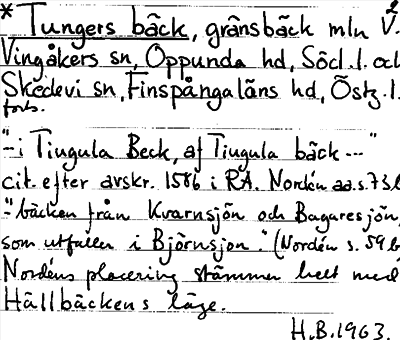 * Tungers bäck, gränsbäck mln V.
Vingåkers sn, Oppunda hd, Södl.l. och
Skedevi sn, Finspångaläns hd, Östg.l.
forts.
"-i Tiugula Beck, af Tiugula bäck ---"
cit. efter avskr. 1586 i RA. Nordén aa. s. 73b
"-bäcken från Kvarnsjön och Bagaresjön,
som utfaller i Björnsjön." (Nordén s. 59b
Nordéns placering stämmer helt med
Hällbäckens läge.
H.B. 1963.